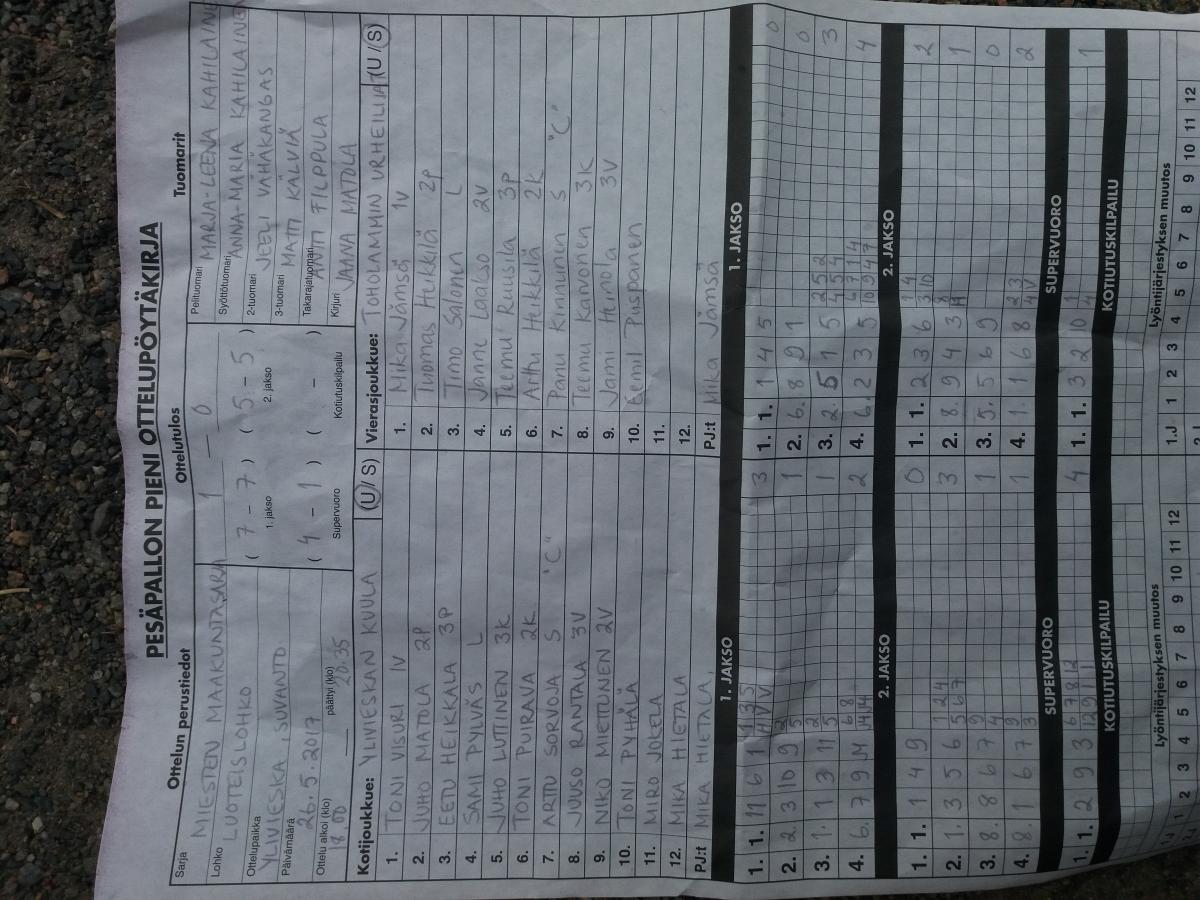 PESÄPALLON PIENI OTTELUPÖYTÄKIRJA
Ottelun perustiedot
Sarja MIESTEN MAAKUNTASARJA
Lohko LUOTEISLOHKO
Ottelupaikka YLIVIESKA SUVANTO
Päivämäärä 26.5.2017
Ottelu alkoi (klo) 18 00 päättyi (klo) 20.35
Ottelutulos
1 — 0
( 7 - 7 ) ( 5 - 5 )
1. jakso 2. jakso
( 4 - 1 ) ( - )
Supervuoro Kotiutuskilpailu
Tuomarit
Pelituomari MARJA-LEENA KAHILAINEN
Syöttötuomari ANNA-MARIA KAHILAINEN
2-tuomari JEELI VÄHÄKANGAS
3-tuomari MATTI KÄLVIÄ
Takarajatuomari ANTTI FILPPULA
Kirjuri JAANA MATOLA
Kotijoukkue: YLIVIESKAN KUULA (U / S)
1. TONI VISURI 1V
2. JUHO MATOLA 2P
3. EETU HEIKKALA 3P
4. SAMI PYLVÄS L
5. JUHO LUTTINEN 3K
6. TONI PUIRAVA 2K
7. ARTTU SORVOJA S "C"
8. JUUSO RANTALA 3V
9. NIKO MIETTUNEN 2V
10. TONI PYHÄLÄ
11. MIRO JOKELA
12. MIKA HIETALA
PJ:t MIKA HIETALA
Vierasjoukkue: TOHOLAMMIN URHEILIJAT (U / S)
1. Mika Jämsä 1v
2. Tuomas Heikkilä 2p
3. Timo Salonen L
4. Janne Laakso 2v
5. Teemu Ruusila 3p
6. Arttu Heikkilä 2k
7. Panu Kinnunen S "C"
8. Teemu Karvonen 3K
9. Jami Hernola 3V
10. Eemil Puspanen
11.
12.
PJ:t Mika Jämsä
1. JAKSO 1. JAKSO
1. 1. 11 6 1 3
2. 2. 3 10 9 1
3. 1. 1 3 11 1
4. 6. 7 9 2
1. 1. 1 4 5 0
2. 6. 8 9 1 0
3. 2. 5 1 5 3
4. 6. 2 3 5 4
2. JAKSO 2. JAKSO
1. 1. 1 4 9 0
2. 1. 3 5 6 3
3. 8. 8 6 7 1
4. 8. 1 6 7 1
1. 1. 2 3 6 2
2. 8. 9 4 3 1
3. 5. 5 6 9 0
4. 1. 1 6 8 2
SUPERVUORO SUPERVUORO
1. 1. 2 9 3 4
1. 1. 3 2 10 1
KOTIUTUSKILPAILU KOTIUTUSKILPAILU
Lyöntijärjestyksen muutos Lyöntijärjestyksen muutos
1 2 3 4 5 6 7 8 9 10 11 12
1.J 1 2 3 4 5 6 7 8 9 10 11 12